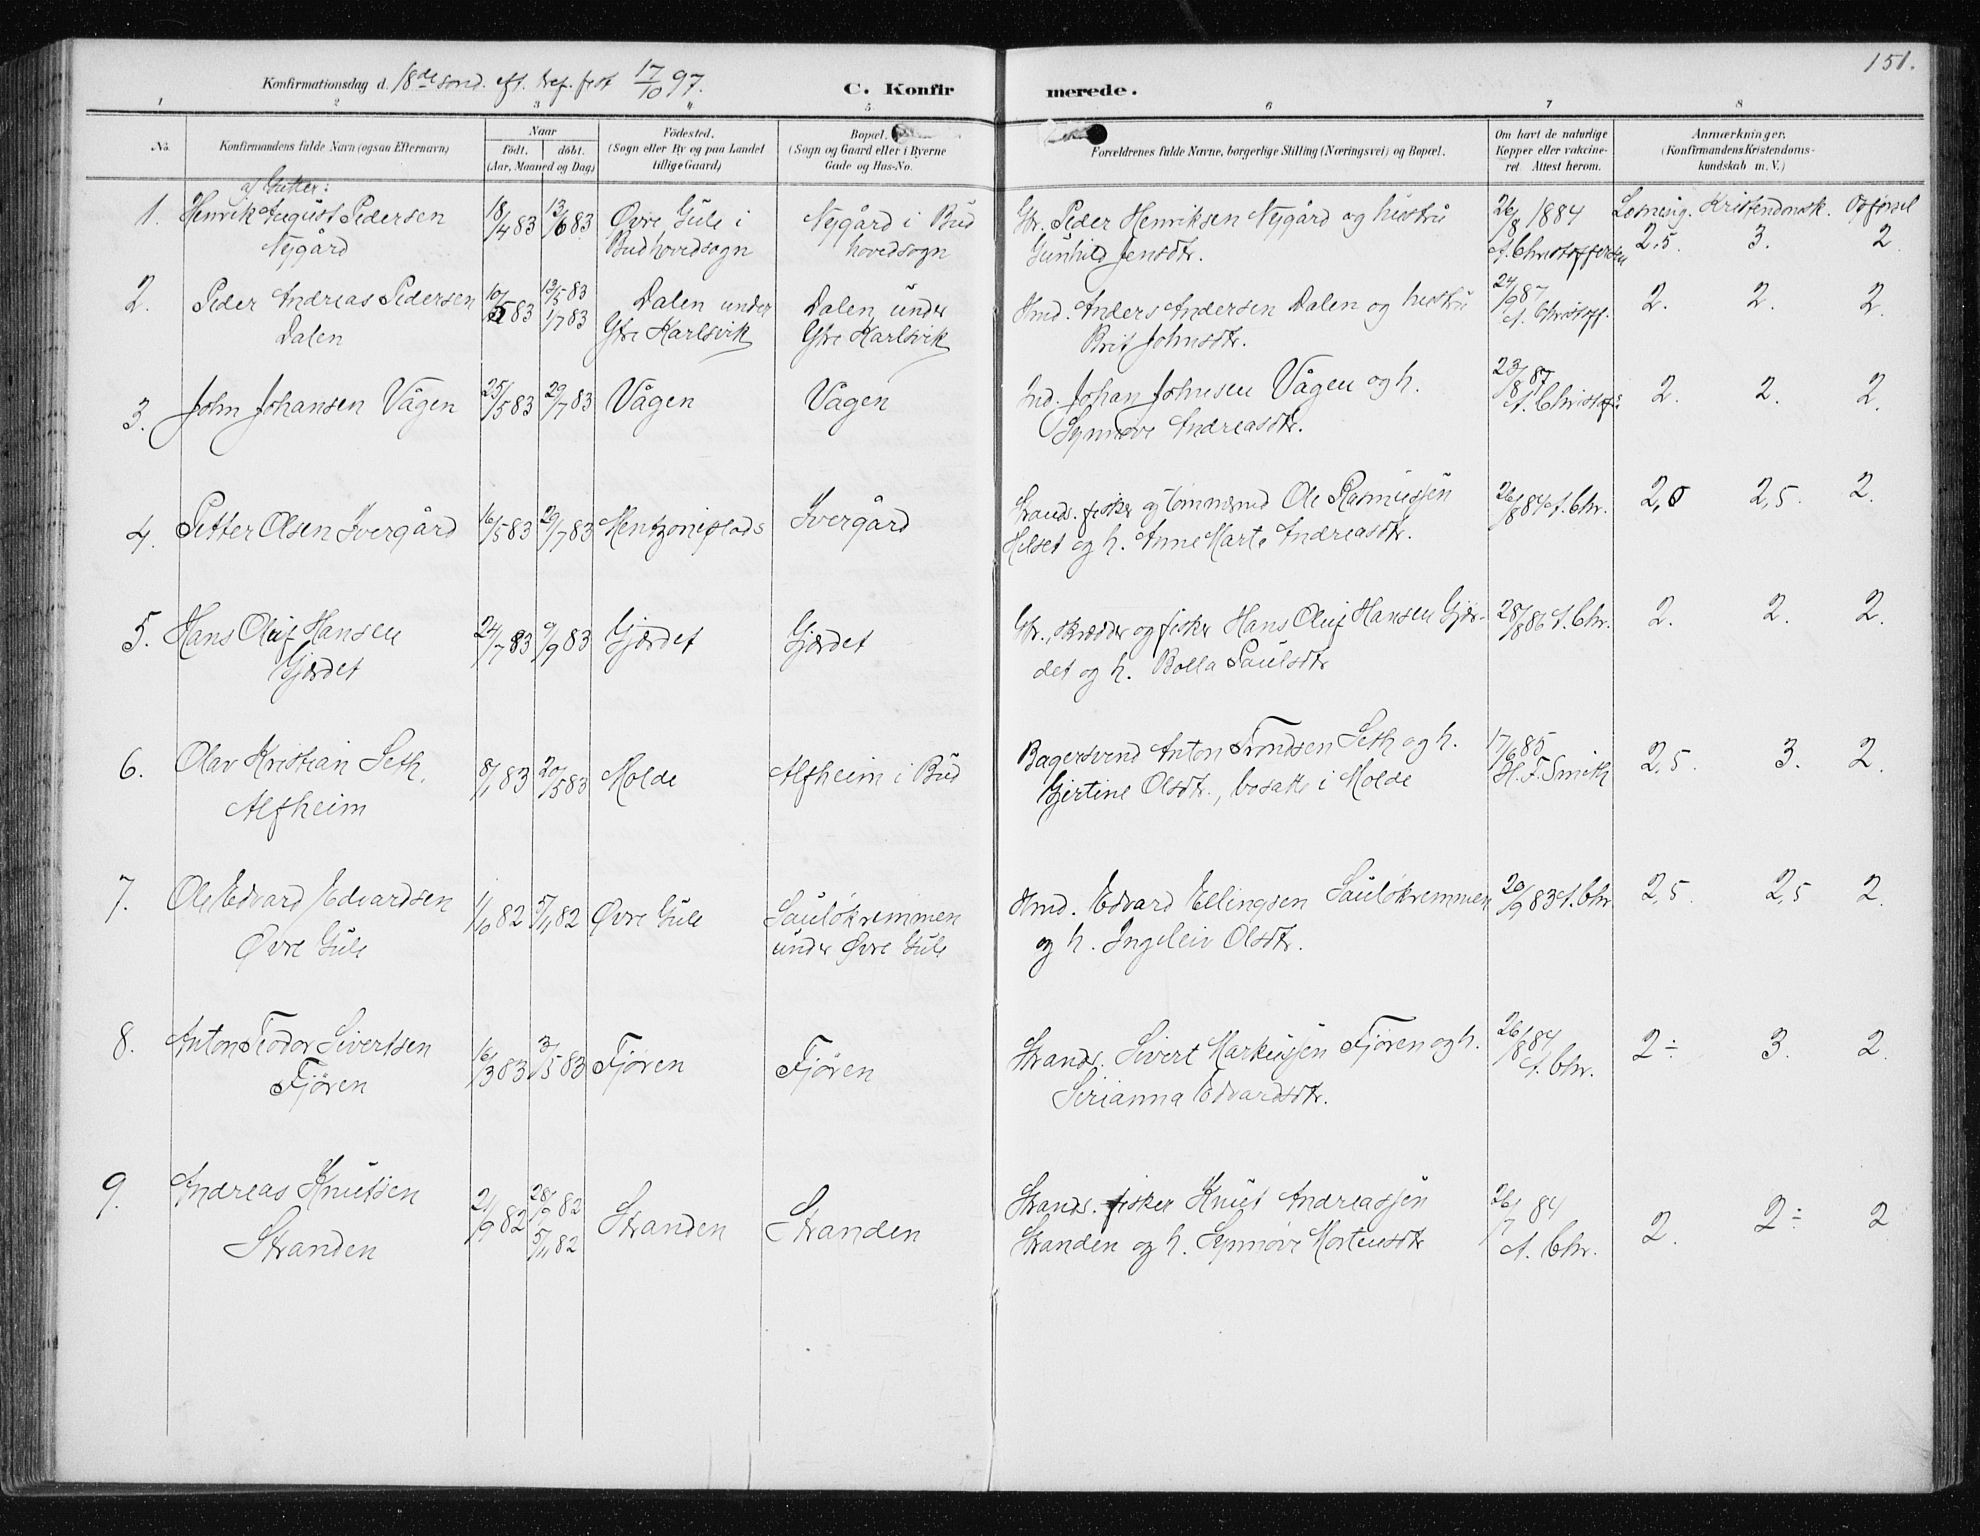 151.
Konfirmationsdag d. 18de sönd. eft. tref. fest 17/10 97.
C. Konfirmerede.
1 2 3 4 5 6 7 8
No. Konfirmandens fulde Navn (ogsaa Efternavn) Naar födt. döbt. (Aar, Maaned og Dag) Födested. (Sogn eller By og paa Landet tillige Gaard) Bopæl. (Sogn og Gaard eller i Byerne Gade og Hus-No. Forældrenes fulde Navne, borgerlige Stilling (Næringsvei) og Bopæl. Om havt de naturlige Kopper eller vakcineret. Attest herom. Anmærkninger. (Konfirmandens Kristendomskundskab m. V.)
af Gutter: Læsning. Kristendomsk. Opførsel
1. Henrik August Pedersen 18/4 83 13/6 83 Øvre Gule i Nygård i Bud Gbr. Peder Henriksen Nygård og hustru 26/8 1884 2,5. 3. 2.
Nygård Bud hovedsogn hovedsogn Gunhild Jensdtr. A. Christoffersen
2. Peder Andreas Pedersen 10/5 83 13/5 83 Dalen under Dalen under Hmd. Anders Andersen Dalen og hustru 24/9 87 2. 2. 2.
Dalen 1/7 83 Gtre Karlsvik Gtre Karlsvik Brit Johnsdtr. A. Christoff.
3. John Johansen Vågen 25/5 83 29/7 83 Vågen Vågen Ind. Johan Johnsen Vågen og h. 23/8 87 2. 2. 2.
Synnøve Andreasdtr. A. Christof:
4. Petter Olsen Ivergård 16/5 83 29/7 83 Mentzonisplads Ivergård Strands. fisker og tømmrmd Ole Rasmussen 26/8 84 A. Chr. 2,5 2,5. 2.
Helset og h. Anne Marta Andreasdtr.
5. Hans Oluf Hansen 24/7 83 9/9 83 Gjærdet Gjærdet Gbr., skrædder og fisker Hans Oluf Hansen Gjær- 28/8 86 A. Chr. 2. 2. 2.
Gjærdet det og h. Bolla Paulsdtr
6. Olav Kristian Seth, 8/1 83 20/5 83 Molde Alfheim i Bud Bagersvend Anton Trondsen Seth og h. 17/6 85 2,5. 3. 2.
Alfheim Gjertine Olsdtr., bosatte i Molde H. T. Smith
7. Ole Edvard Edvardsen 1/10 82 5/11 82 Øvre Gule Sauløkremmen Hmd. Edvard Ellingsen Sauløkremmen 20/9 83 A. Chr. 2,5. 2,5 2.
Øvre Gule under Øvre Gule og h. Ingeleiv Olsdtr.
8. Anton Teodor Sivertsen 16/3 83 3/5 83 Fjøren Fjøren Strands. Sivert Markussen Fjøren og h. 26/8 84 2÷. 3. 2.
Fjøren Sirianna Edvardsdtr. A. Chr.
9. Andreas Knutsen 21/9 82 28/9 82 Stranden Stranden Strands. fisker Knut Andreassen 26/ 84 2. 2÷ 2
Stranden 5/11 82 Stranden og h. Synnøve Mortensdtr A. Chr.